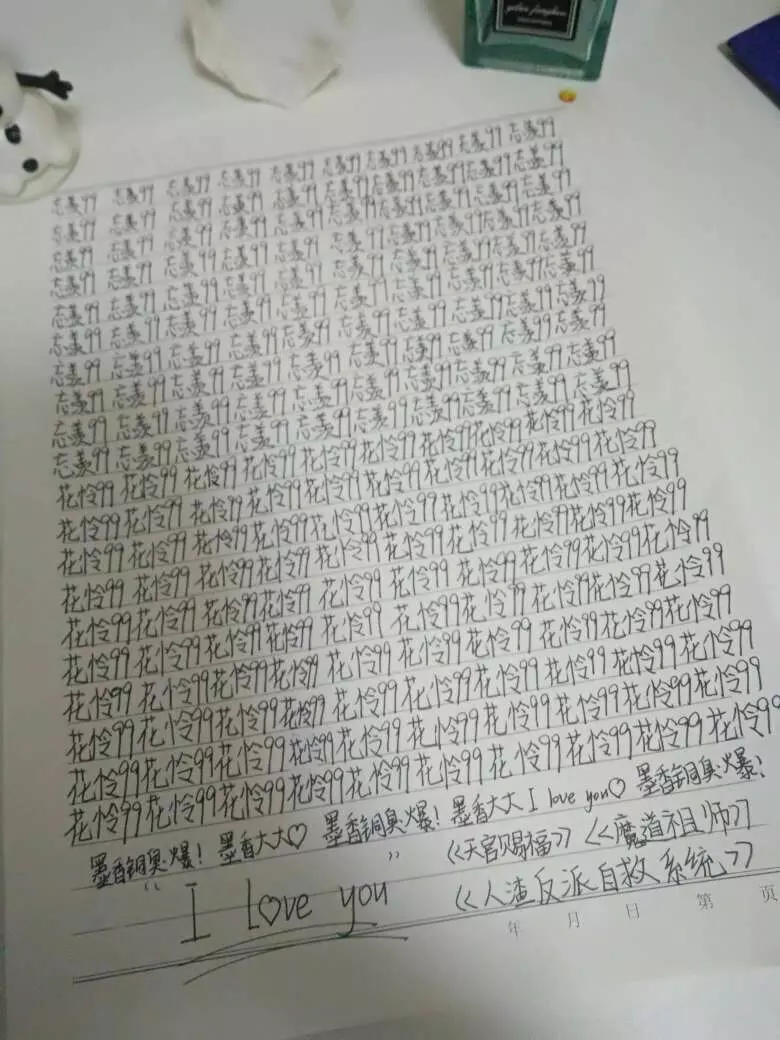 忘羡99 忘羡99 忘羡99 忘羡99 忘羡99 忘羡99 忘羡99 忘羡99 忘羡99 忘羡99
忘羡99 忘羡99 忘羡99 忘羡99 忘羡99 忘羡99 忘羡99 忘羡99 忘羡99 忘羡99
忘羡99 忘羡99 忘羡99 忘羡99 忘羡99 忘羡99 忘羡99 忘羡99 忘羡99 忘羡99
忘羡99 忘羡99 忘羡99 忘羡99 忘羡99 忘羡99 忘羡99 忘羡99 忘羡99 忘羡99
忘羡99 忘羡99 忘羡99 忘羡99 忘羡99 忘羡99 忘羡99 忘羡99 忘羡99 忘羡99
忘羡99 忘羡99 忘羡99 忘羡99 忘羡99 忘羡99 忘羡99 忘羡99 忘羡99 忘羡99
忘羡99 忘羡99 忘羡99 忘羡99 忘羡99 忘羡99 忘羡99 忘羡99 忘羡99 忘羡99
忘羡99 忘羡99 忘羡99 忘羡99 忘羡99 忘羡99 忘羡99 忘羡99 忘羡99 忘羡99
忘羡99 忘羡99 忘羡99 忘羡99 忘羡99 忘羡99 忘羡99 忘羡99 忘羡99 忘羡99
忘羡99 忘羡99 忘羡99 忘羡99 忘羡99 忘羡99 忘羡99 忘羡99 忘羡99 忘羡99
花怜99 花怜99 花怜99 花怜99 花怜99 花怜99 花怜99 花怜99 花怜99 花怜99
花怜99 花怜99 花怜99 花怜99 花怜99 花怜99 花怜99 花怜99 花怜99 花怜99
花怜99 花怜99 花怜99 花怜99 花怜99 花怜99 花怜99 花怜99 花怜99 花怜99
花怜99 花怜99 花怜99 花怜99 花怜99 花怜99 花怜99 花怜99 花怜99 花怜99
花怜99 花怜99 花怜99 花怜99 花怜99 花怜99 花怜99 花怜99 花怜99 花怜99
花怜99 花怜99 花怜99 花怜99 花怜99 花怜99 花怜99 花怜99 花怜99 花怜99
花怜99 花怜99 花怜99 花怜99 花怜99 花怜99 花怜99 花怜99 花怜99 花怜99
花怜99 花怜99 花怜99 花怜99 花怜99 花怜99 花怜99 花怜99 花怜99 花怜99
花怜99 花怜99 花怜99 花怜99 花怜99 花怜99 花怜99 花怜99 花怜99 花怜99
花怜99 花怜99 花怜99 花怜99 花怜99 花怜99 花怜99 花怜99 花怜99 花怜99
墨香铜臭·爆! 墨香大大♡ 墨香铜臭·爆! 墨香大大 I love you♡ 墨香铜臭·爆!
《天官赐福》《魔道祖师》
“ I Love you ”
《人渣反派自救系统》
年 月 日 第 页